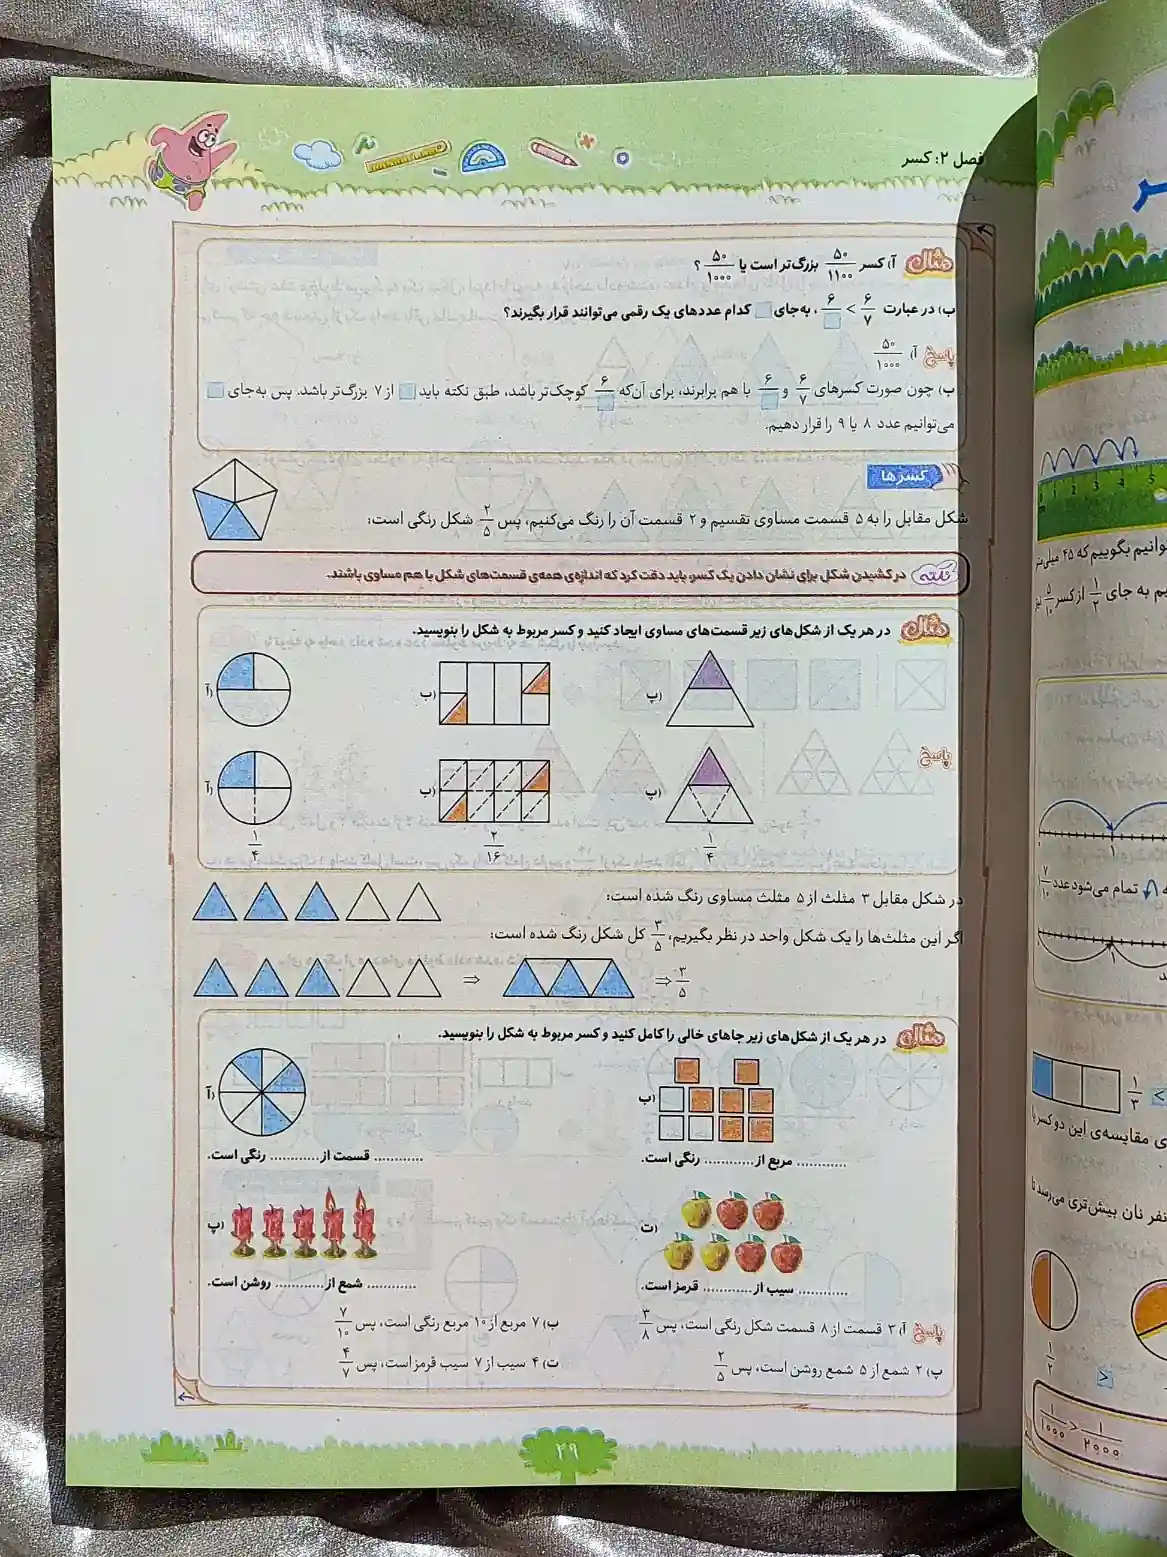 فصل ۲: کسر
مثال آ) کسر ۵۰/۱۱۰۰ بزرگ‌تر است یا ۵۰/۱۰۰۰ ؟
ب) در عبارت ۶/۷ > ۶/□ ، به‌جای □ کدام عددهای یک رقمی می‌توانند قرار بگیرند؟
پاسخ آ) ۵۰/۱۰۰۰
ب) چون صورت کسرهای ۶/۷ و ۶/□ با هم برابرند، برای آن‌که ۶/□ کوچک‌تر باشد، طبق نکته باید □ از ۷ بزرگ‌تر باشد. پس به‌جای □
می‌توانیم عدد ۸ یا ۹ را قرار دهیم.
کسرها
شکل مقابل را به ۵ قسمت مساوی تقسیم و ۲ قسمت آن را رنگ می‌کنیم، پس ۲/۵ شکل رنگی است:
نکته در کشیدن شکل برای نشان دادن یک کسر، باید دقت کرد که اندازه‌ی همه‌ی قسمت‌های شکل با هم مساوی باشند.
مثال در هر یک از شکل‌های زیر قسمت‌های مساوی ایجاد کنید و کسر مربوط به شکل را بنویسید.
آ) ب) پ)
پاسخ
آ) ب) پ)
۱/۴ ۲/۱۶ ۱/۴
در شکل مقابل ۳ مثلث از ۵ مثلث مساوی رنگ شده است:
اگر این مثلث‌ها را یک شکل واحد در نظر بگیریم، ۳/۵ کل شکل رنگ شده است:
⇒ ⇒ ۳/۵
مثال در هر یک از شکل‌های زیر جاهای خالی را کامل کنید و کسر مربوط به شکل را بنویسید.
آ) ب)
............ قسمت از ............ رنگی است.
............ مربع از ............ رنگی است.
پ) ت)
............ شمع از ............ روشن است.
............ سیب از ............ قرمز است.
پاسخ آ) ۳ قسمت از ۸ قسمت شکل رنگی است، پس ۳/۸
ب) ۷ مربع از ۱۰ مربع رنگی است، پس ۷/۱۰
پ) ۲ شمع از ۵ شمع روشن است، پس ۲/۵
ت) ۴ سیب از ۷ سیب قرمز است، پس ۴/۷
۲۹
0 1 2 3 4 5
توانیم بگوییم که ۴۵
یم به جای ۱/۲ از کسر ۵/۱۰
۱
تمام می‌شود عدد ۷/۱۰
۱
۱/۳ >
ی مقایسه‌ی این دو کسر
نفر نان بیش‌تری می‌رسد تا
۱/۲ >
۱/۱۰۰۰ > ۱/۲۰۰۰